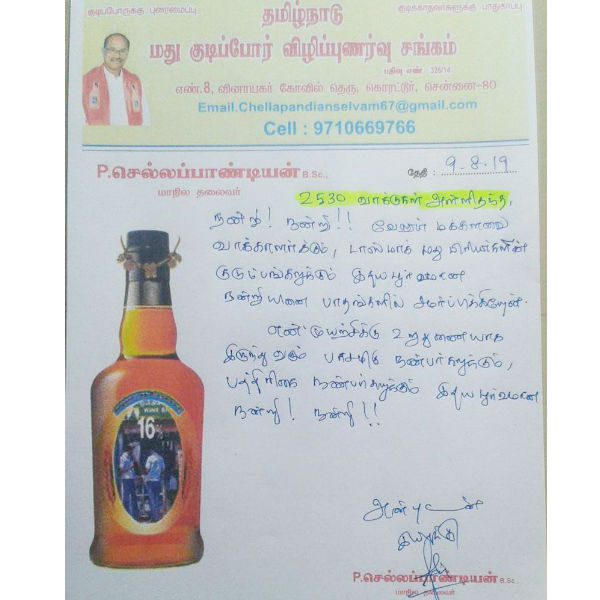 குடிபோருக்கு புரைமைப்பு
குடிக்காதவர்களுக்கு பாதுகாப்பு
தமிழ்நாடு
மது குடிப்போர் விழிப்புணர்வு சங்கம்
பதிவு எண் : 326/14
எண்.8, வினாயகர் கோவில் தெரு, கொரட்டூர், சென்னை-80
Email.Chellapandianselvam67@gmail.com
Cell : 9710669766
P.செல்லப்பாண்டியன் B.Sc.,
மாநில தலைவர்
தேதி : 9.8.19
2530 வாக்குகள் அள்ளிதந்த,
நன்றி! நன்றி!! வேலூர் மக்களவை
வாக்காளர்க்கும், டாஸ்மாக் மது பிரியர்களின்
குடும்பங்களுக்கும் இதயபூர்வமான
நன்றியினை பாதங்களில் சமர்ப்பிக்கிறேன்.
என் முயற்சிக்கு உறுதுணையாக
இருந்து வரும் நண்பர்களுக்கும்,
பத்திரிகை நண்பர்களுக்கும் இதயபூர்வமான
நன்றி! நன்றி!!
16
அன்புடன்
P.செல்லப்பாண்டியன் B.Sc.,
மாநில தலைவர்